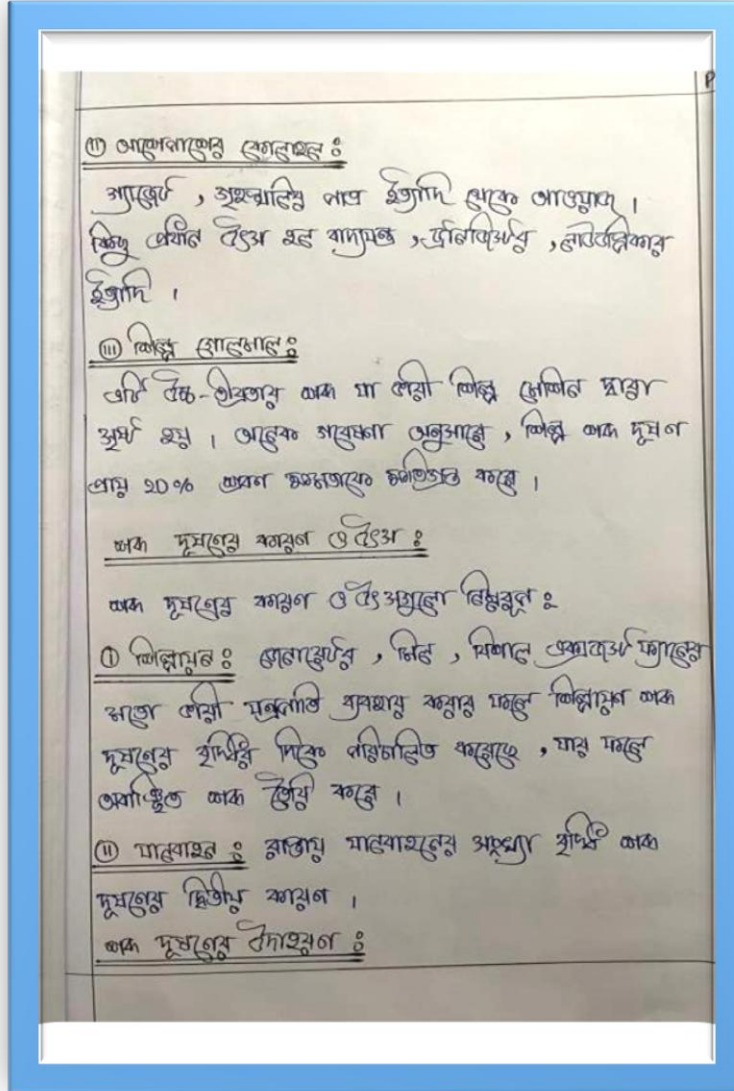 P
(ii) আশেপাশের কোলাহল :
গ্যাজেট , গৃহস্থালির পাত্র ইত্যাদি থেকে আওয়াজ ।
কিন্তু প্রধান উৎস হল বাদ্যযন্ত্র , ট্রানজিস্টর , লাউডস্পিকার
ইত্যাদি ।
(iii) শিল্প গোলমাল :
এটি উচ্চ-তীব্রতার শব্দ যা ভারী শিল্প মেশিন দ্বারা
সৃষ্ট হয় । অনেক গবেষণা অনুসারে , শিল্প শব্দ দূষণ
প্রায় 20% শ্রবণ ক্ষমতাকে ক্ষতিগ্রস্ত করে ।
শব্দ দূষণের কারণ ও উৎস :
শব্দ দূষণের কারণ ও উৎসগুলো নিম্নরূপ :
(i) শিল্পায়ন : জেনারেটর , মিল , বিশাল এক্সজস্ট ফ্যানের
মতো ভারী যন্ত্রপাতি ব্যবহার করার ফলে শিল্পায়ন শব্দ
দূষণের বৃদ্ধির দিকে পরিচালিত করেছে , যার ফলে
অবাঞ্ছিত শব্দ তৈরি করে ।
(ii) যানবাহন : রাস্তায় যানবাহনের সংখ্যা বৃদ্ধি শব্দ
দূষণের দ্বিতীয় কারণ ।
শব্দ দূষণের উদাহরণ :